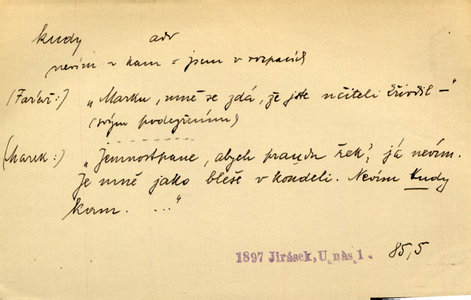 kudy adv
nevím r kam = jsem v rozpacích
(Farář:) „Marku, mně se zdá, že jste učiteli křivdil –"
(svým podezříním)
(Marek:) „Jemnostpane, abych pravdu řek', já nevím.
Je mně jako bleše v koudeli. Nevím kudy
kam. ..."
1897 Jirásek, U nás 1. 85,5